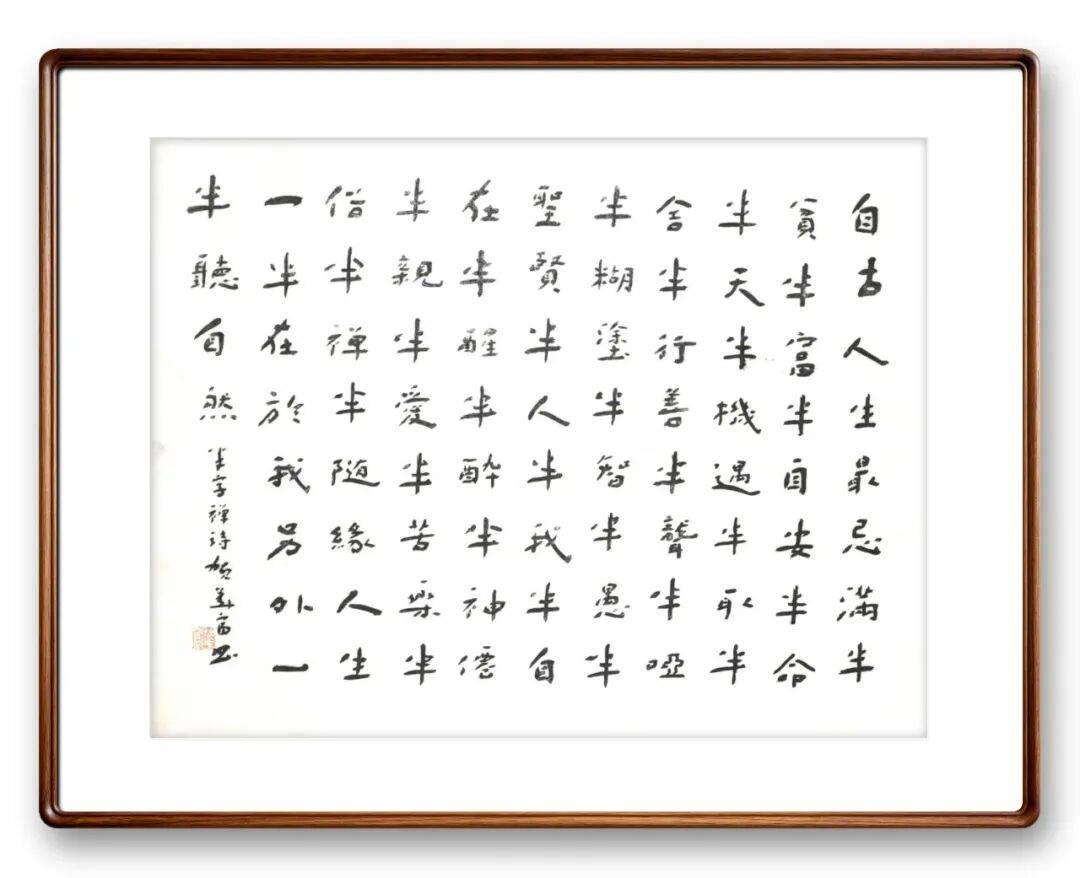 自古人生最忌滿半
貧半富半自安半命
半天半機遇半取半
舍半行善半聾半啞
半糊塗半智半愚半
聖賢半人半我半自
在半醒半醉半神僊
半親半愛半苦樂半
俗半禅半随緣人生
一半在於我另外一
半聽自然
半字禅詩賀